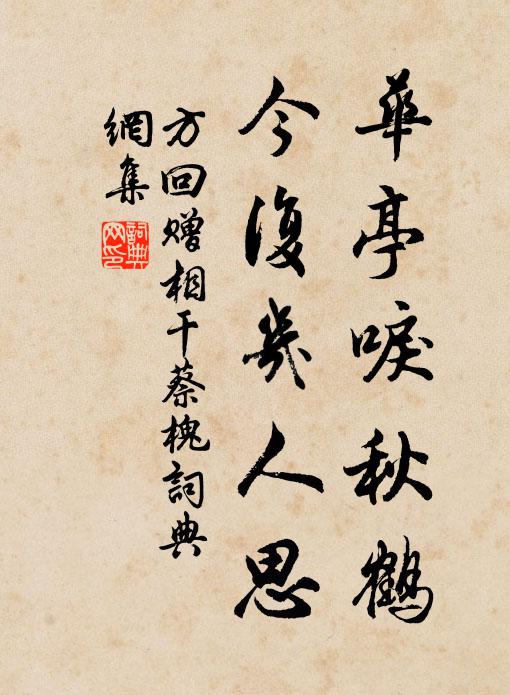 華亭唳秋鶴
今復幾人思
方回贈相干蔡槐詞典
網集
詞典
网印